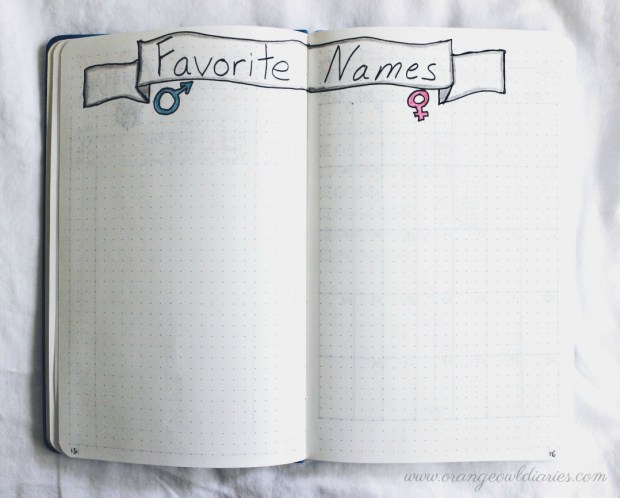 Favorite Names
15
16
www.orangeowldiaries.com